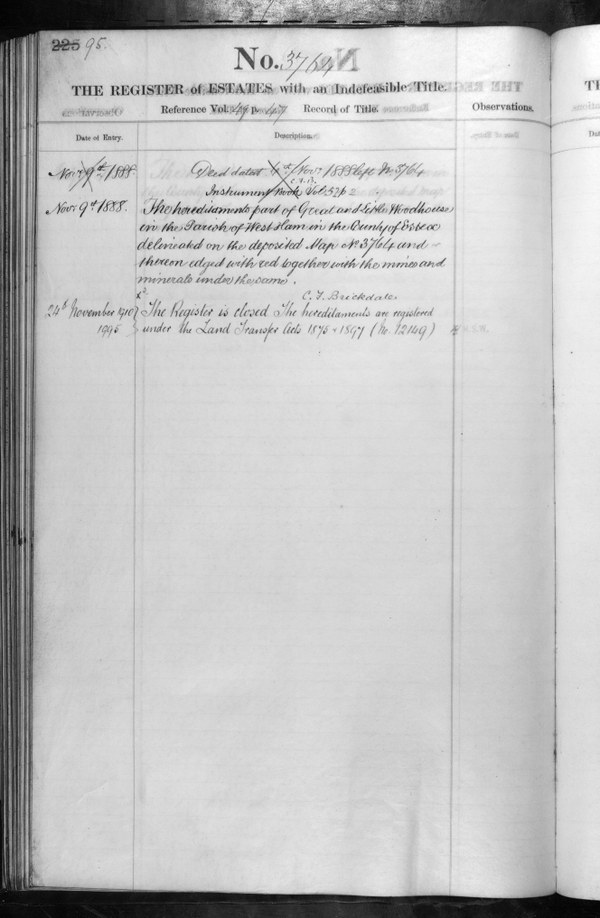 225 95.
No. 3764
THE REGISTER of ESTATES with an Indefeasible Title.
Reference Vol. 49 p. 47 Record of Title.
Observations.
Date of Entry.
Description.
Nov. 9th 1888. Deed dated 1st Nov. 1888 left No 3764
Instrument Book Vol. 52 p 2
Nov. 9th 1888. The hereditaments part of Great and Little Woodhouse
in the Parish of West Ham in the County of Essex
delineated on the deposited Map No 3764 and
thereon edged with red together with the mines and
minerals under the same.
C. F. Brickdale
24th November 1910 The Register is closed The hereditaments are registered
1995 under the Land Transfer Acts 1875 & 1897 (No. 12149)